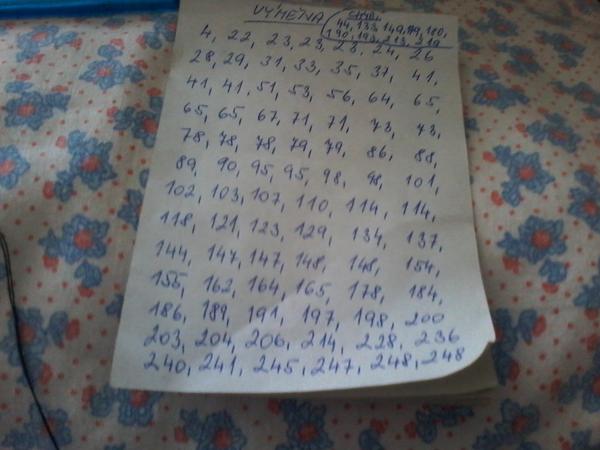 VÝMĚNA
44, 133, 149, 179, 180,
190, 193, 213, 219
4, 22, 23, 23, 23, 24, 26
28, 29, 31, 33, 35, 37, 41,
41, 41, 51, 53, 56, 64, 65,
65, 65, 67, 71, 71, 73, 73,
78, 78, 78, 79, 79, 86, 88,
89, 90, 95, 95, 98, 98, 101,
102, 103, 107, 110, 114, 114,
118, 121, 123, 129, 134, 137,
144, 147, 147, 148, 148, 154,
155, 162, 164, 165, 178, 184,
186, 189, 191, 197, 198, 200
203, 204, 206, 214, 228, 236
240, 241, 245, 247, 248, 248